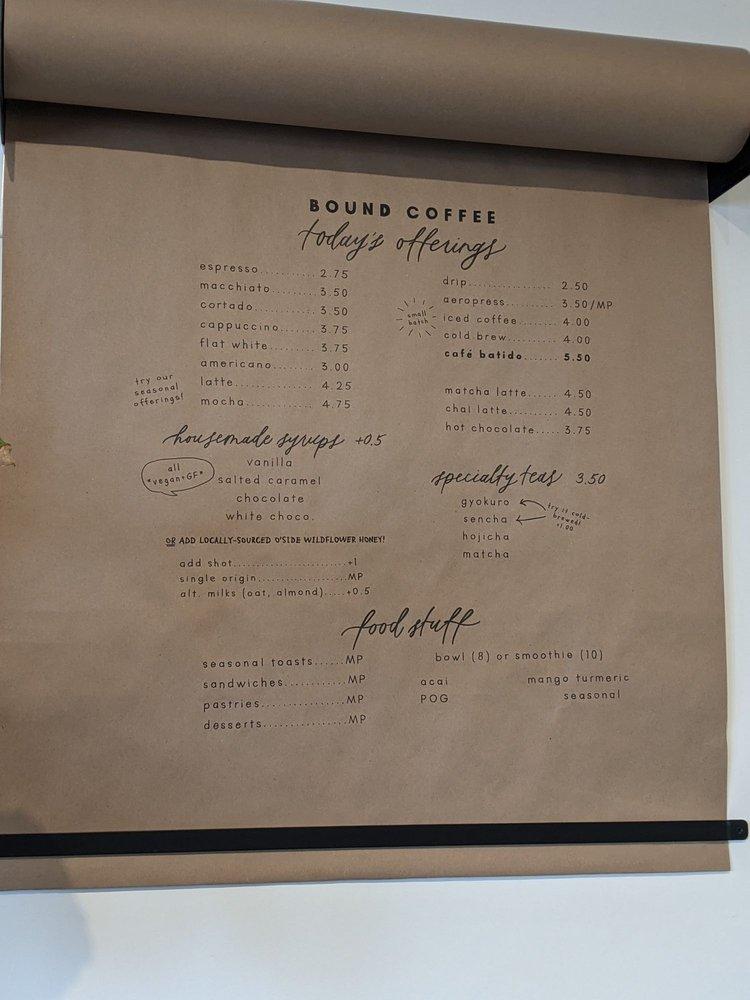 BOUND COFFEE
today's offerings
espresso.......... 2.75
macchiato........ 3.50
cortado............ 3.50
cappuccino....... 3.75
flat white.......... 3.75
americano......... 3.00
latte................ 4.25
mocha.............. 4.75
try our
seasonal
offerings!
drip.................. 2.50
aeropress........... 3.50/MP
iced coffee......... 4.00
cold brew........... 4.00
café batido....... 5.50
small
batch
matcha latte....... 4.50
chai latte........... 4.50
hot chocolate..... 3.75
housemade syrups +0.5
all
*vegan+GF*
vanilla
salted caramel
chocolate
white choco.
OR ADD LOCALLY-SOURCED O'SIDE WILDFLOWER HONEY!
add shot.........................+1
single origin....................MP
alt. milks (oat, almond).....+0.5
specialty teas 3.50
gyokuro
sencha
hojicha
matcha
try it cold-
brewed!
+1.00
food stuff
seasonal toasts......MP
sandwiches............MP
pastries.................MP
desserts................MP
bowl (8) or smoothie (10)
acai mango turmeric
POG seasonal